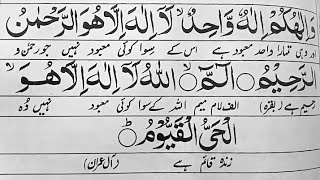 وَاِلٰهُكُمْ اِلٰهٌ وَّاحِدٌ لَآ اِلٰهَ اِلَّا هُوَ الرَّحْمٰنُ
اور وہی تمہارا واحد معبود ہے اس کے سوا کوئی معبود نہیں جو رحمٰن و
الرَّحِيْمُ الٓمّٓ اللّٰهُ لَآ اِلٰهَ اِلَّا هُوَ
رحیم ہے (بقرہ) الف لام میم اللہ کے سوا کوئی معبود نہیں وہ
الْحَيُّ الْقَيُّوْمُ ط
زندہ قائم ہے (آل عمران)